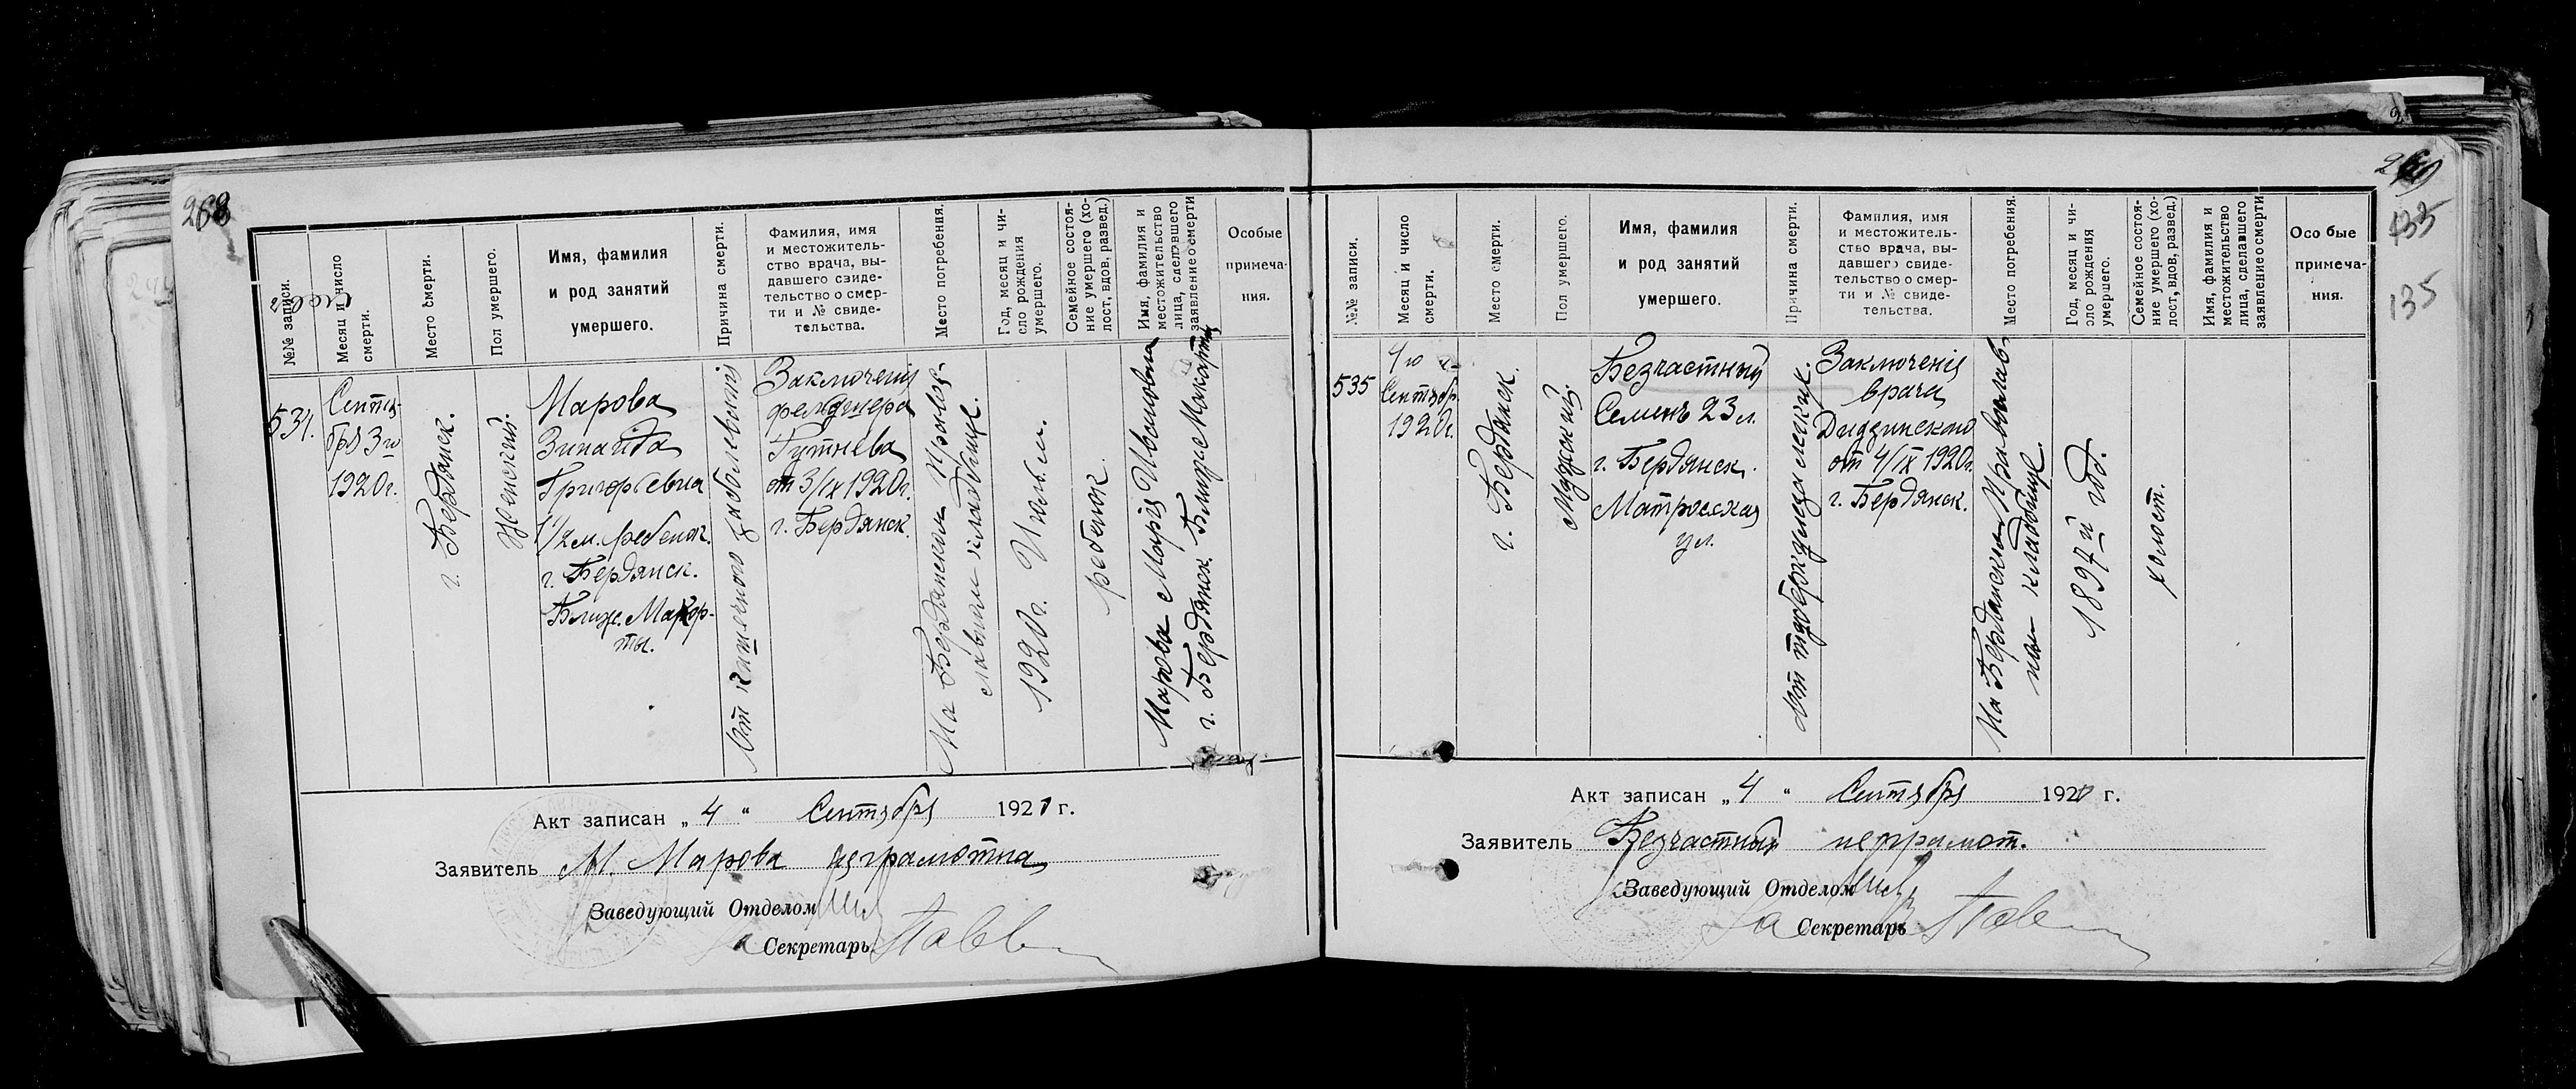 268
№№ записи.
Месяц и число
смерти.
Место смерти.
Пол умершего.
Имя, фамилия
и род занятий
умершего.
Причина смерти.
Фамилия, имя
и местожитель-
ство врача, вы-
давшего свиде-
тельство о смер-
ти и № свиде-
тельства.
Место погребения.
Год, месяц и чи-
сло рождения
умершего.
Семейное состоя-
ние умершего (хо-
лост, вдов, развед.)
Имя, фамилия и
местожительство
лица, сделавшего
заявление о смерти
Особые
примеча-
ния.
534.
Сентя-
бря 3го
1920 г.
г. Бердянск.
Женский.
Марова
Зинаида
Григорьевна
1½ м. ребенок.
г. Бердянск.
Ближ. Макор-
ты.
От кишечного заболевания
Заключения
фельдшера
Гутнева
от 3/IX 1920 г.
г. Бердянск.
На Бердянском Правос-
лавном кладбище.
1920 г. Июль м.
ребенок.
Марова Мария Ивановна
г. Бердянск Ближ. Макорты
Акт записан „4“ Сентября 1920 г.
Заявитель М. Марова неграмотна
Заведующий Отделом
За Секретарь
269
133
135
№№ записи.
Месяц и число
смерти.
Место смерти.
Пол умершего.
Имя, фамилия
и род занятий
умершего.
Причина смерти.
Фамилия, имя
и местожитель-
ство врача, вы-
давшего свиде-
тельство о смер-
ти и № свиде-
тельства.
Место погребения.
Год, месяц и чи-
сло рождения
умершего.
Семейное состоя-
ние умершего (хо-
лост, вдов, развед.)
Имя, фамилия и
местожительство
лица, сделавшего
заявление о смерти
Особые
примеча-
ния.
535
4го
Сентябр.
1920 г.
г. Бердянск.
Мужский.
Безчастный
Семенъ 23 л.
г. Бердянск.
Матросская
ул.
От туберкулеза легких.
Заключения
врача
от 4/IX 1920 г.
г. Бердянск.
На Бердянском Православ-
ном кладбище.
1897й год.
холост.
Акт записан „4“ Сентября 1920 г.
Заявитель Безчастный неграмот.
Заведующий Отделом
За Секретарь